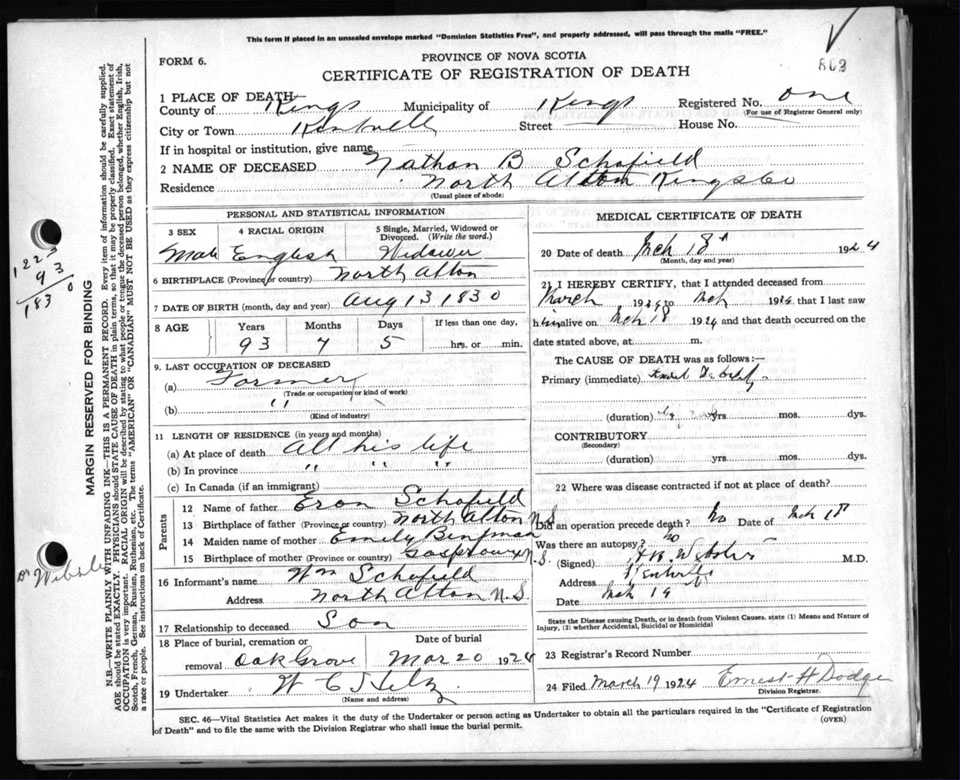 This form if placed in an unsealed envelope marked "Dominion Statistics Free", and properly addressed, will pass through the mails "FREE."
FORM 6.
PROVINCE OF NOVA SCOTIA
CERTIFICATE OF REGISTRATION OF DEATH
1 PLACE OF DEATH
County of Kings Municipality of Kings Registered No. one
(For use of Registrar General only)
City or Town Kentville Street House No.
If in hospital or institution, give name
2 NAME OF DECEASED Nathan B Schofield
Residence North Alton Kings Co
(Usual place of abode)
PERSONAL AND STATISTICAL INFORMATION
3 SEX 4 RACIAL ORIGIN 5 Single, Married, Widowed or Divorced. (Write the word.)
Male English Widower
6 BIRTHPLACE (Province or country) North Alton
7 DATE OF BIRTH (month, day and year) Aug 13 1830
8 AGE Years Months Days If less than one day,
93 7 5 hrs. or min.
9. LAST OCCUPATION OF DECEASED
(a) Farmer
(Trade or occupation or kind of work)
(b) " "
(Kind of industry)
11 LENGTH OF RESIDENCE (in years and months)
(a) At place of death All his life
(b) In province " " "
(c) In Canada (if an immigrant)
Parents
12 Name of father Eron Schofield
13 Birthplace of father (Province or country) North Alton N.S
14 Maiden name of mother Emily
15 Birthplace of mother (Province or country) N.S.
16 Informant's name Wm Schofield
Address North Alton N.S
17 Relationship to deceased Son
18 Place of burial, cremation or removal Oak Grove Date of burial Mar 20 1924
19 Undertaker W C
(Name and address)
MEDICAL CERTIFICATE OF DEATH
20 Date of death Mch 18 1924
(Month, day and year)
21 I HEREBY CERTIFY, that I attended deceased from
March 1924 to Mch 1924 that I last saw
him alive on Mch 18 1924 and that death occurred on the
date stated above, at m.
The CAUSE OF DEATH was as follows:—
Primary (immediate)
(duration) yrs mos. dys.
CONTRIBUTORY
(Secondary)
(duration) yrs mos. dys.
22 Where was disease contracted if not at place of death?
Did an operation precede death? No Date of Mch 18
Was there an autopsy? no
(Signed) Webster M.D.
Address Kentville
Date Mch 19
State the Disease causing Death, or in death from Violent Causes. state (1) Means and Nature of Injury, (2) whether Accidental, Suicidal or Homicidal
23 Registrar's Record Number
24 Filed March 19 1924 Ernest H Dodge
Division Registrar.
SEC. 46—Vital Statistics Act makes it the duty of the Undertaker or person acting as Undertaker to obtain all the particulars required in the "Certificate of Registration
of Death" and to file the same with the Division Registrar who shall issue the burial permit.
(OVER)
MARGIN RESERVED FOR BINDING
N.B.—WRITE PLAINLY WITH UNFADING INK—THIS IS A PERMANENT RECORD. Every item of information should be carefully supplied.
AGE should be stated EXACTLY. PHYSICIANS should STATE CAUSE OF DEATH in plain terms, so that it may be properly classified. Exact statement of
OCCUPATION is very important. RACIAL ORIGIN will be described by stating to what people or tongue the deceased person belonged, whether English, Irish,
Scotch, French, German, Russian, Ruthenian, etc. The terms "AMERICAN" OR "CANADIAN" MUST NOT BE USED as they express citizenship but not
a race or people. See instructions on back of Certificate.
93
1830